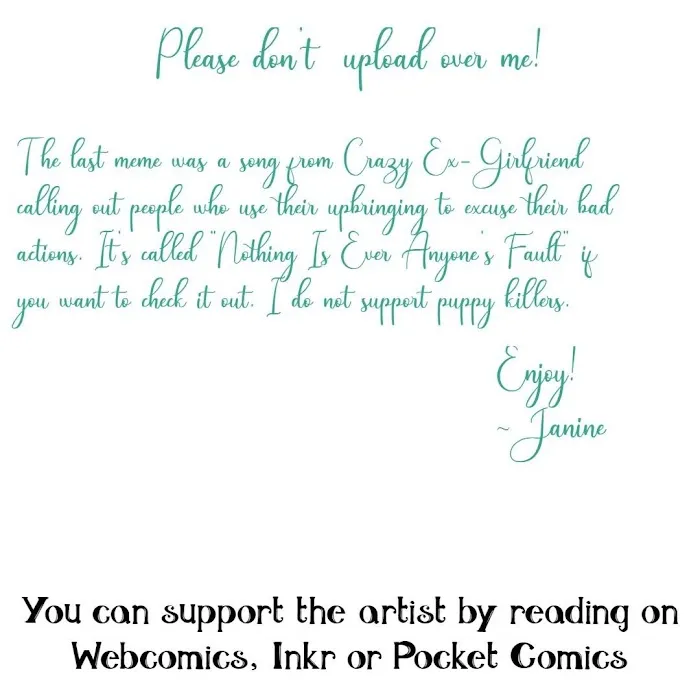 Please don't upload over me!
The last meme was a song from Crazy Ex-Girlfriend
calling out people who use their upbringing to excuse their bad
actions. It's called "Nothing Is Ever Anyone's Fault" if
you want to check it out. I do not support puppy killers.
Enjoy!
~ Janine
You can support the artist by reading on
Webcomics, Inkr or Pocket Comics